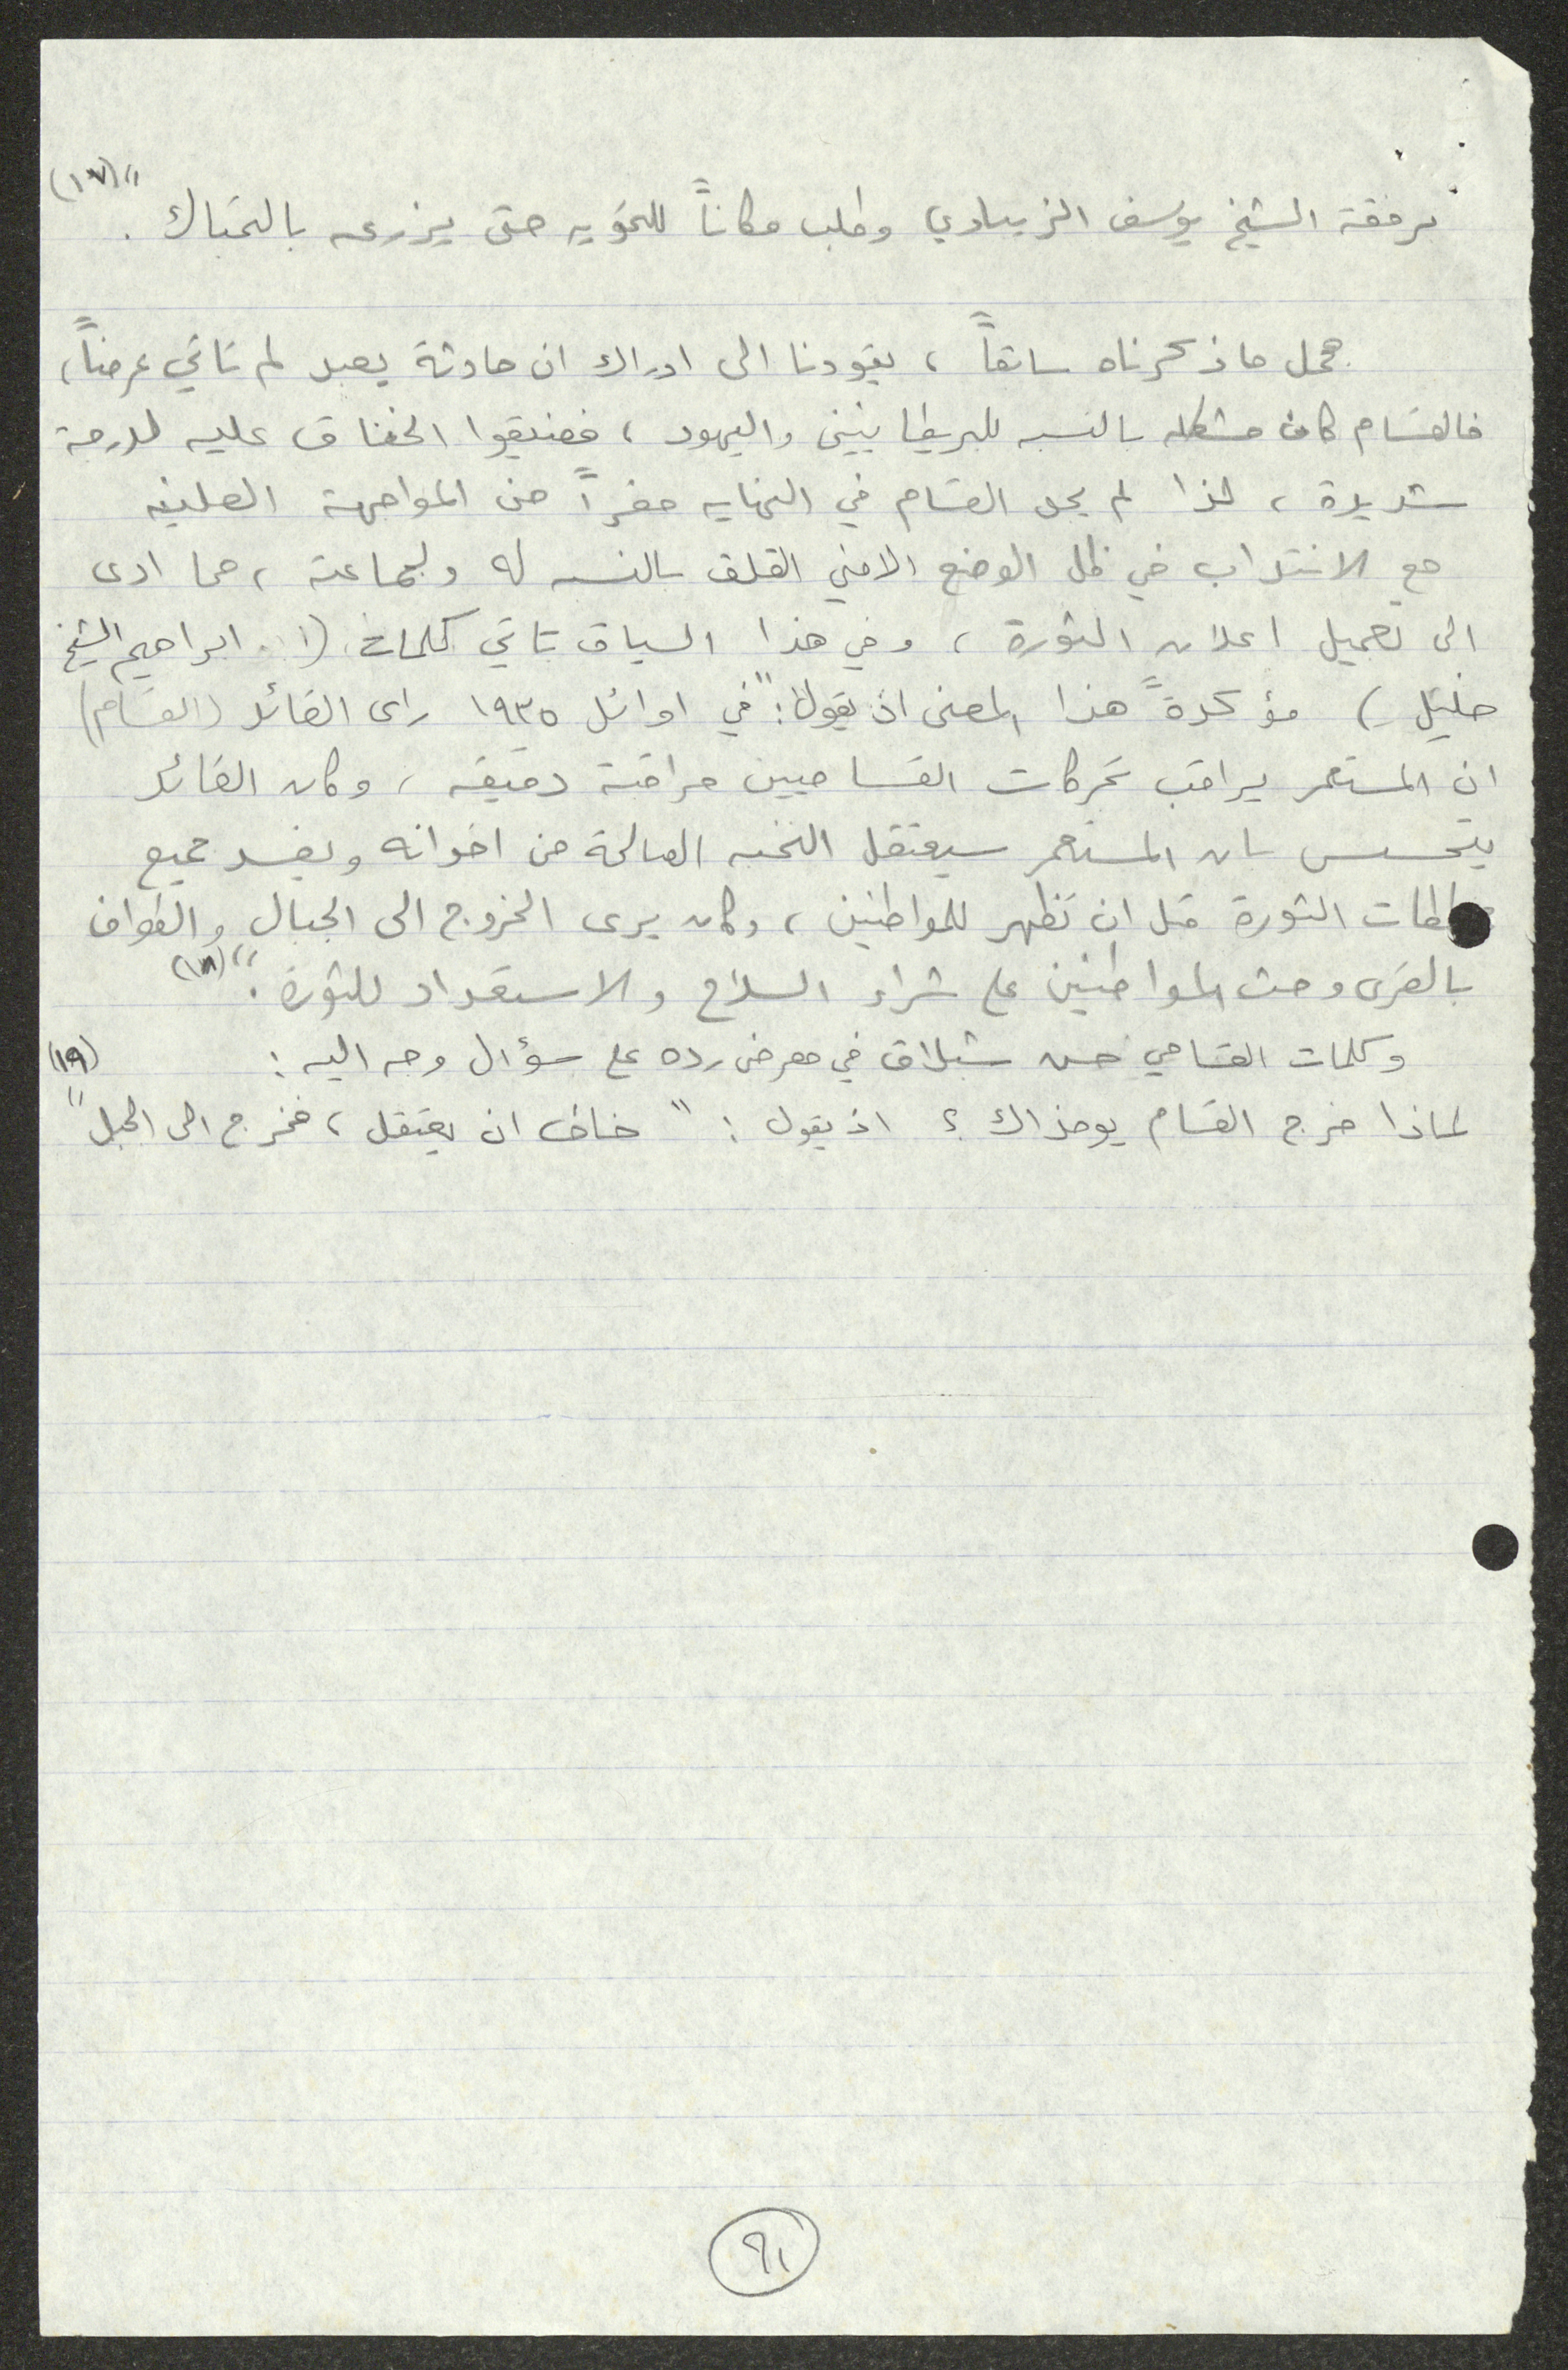 برفقة الشيخ يوسف الزيباوي وطلب مكاناً للتمويه حتى يزرعه بالتمباك . " (١٧)
مجمل ما ذكرناه سابقاً ، يقودنا الى ادراك ان حادثة يعبد لم تاتي عرضاً ،
فالقسام كان مشكله بالنسبه للبريطانيين واليهود ، فضيقوا الخناق عليه لدرجة
شديدة ، لذا لم يجد القسام في النهايه مفراً من المواجهة العلنيه
مع الانتداب في ظل الوضع الامني القلق بالنسبه له ولجماعته ، مما ادى
الى تعجيل اعلان الثورة ، وفي هذا السياق تاتي كلمات (ا . ابراهيم الشيخ
خليل) مؤكدةً هذا المعنى اذ يقول : " في اوائل ١٩٣٥ راى القائد (القسام)
ان المستعمر يراقب تحركات القساميين مراقبة دقيقه ، وكان القائد
يتحسس بان المستعمر سيعتقل النخبه الصالحة من اخوانه ويفسد جميع
مخططات الثورة قبل ان تظهر للمواطنين ، وكان يرى الخروج الى الجبال والطواف
بالقرى وحث المواطنين على شراء السلاح والاستعداد للثورة . " (١٨)
وكلمات القسامي حسن شبلاق في معرض رده على سؤال وجه اليه : (١٩)
لماذا خرج القسام يومذاك ؟ اذ يقول : " خاف ان يعتقل ، فخرج الى الجبل "
٩١